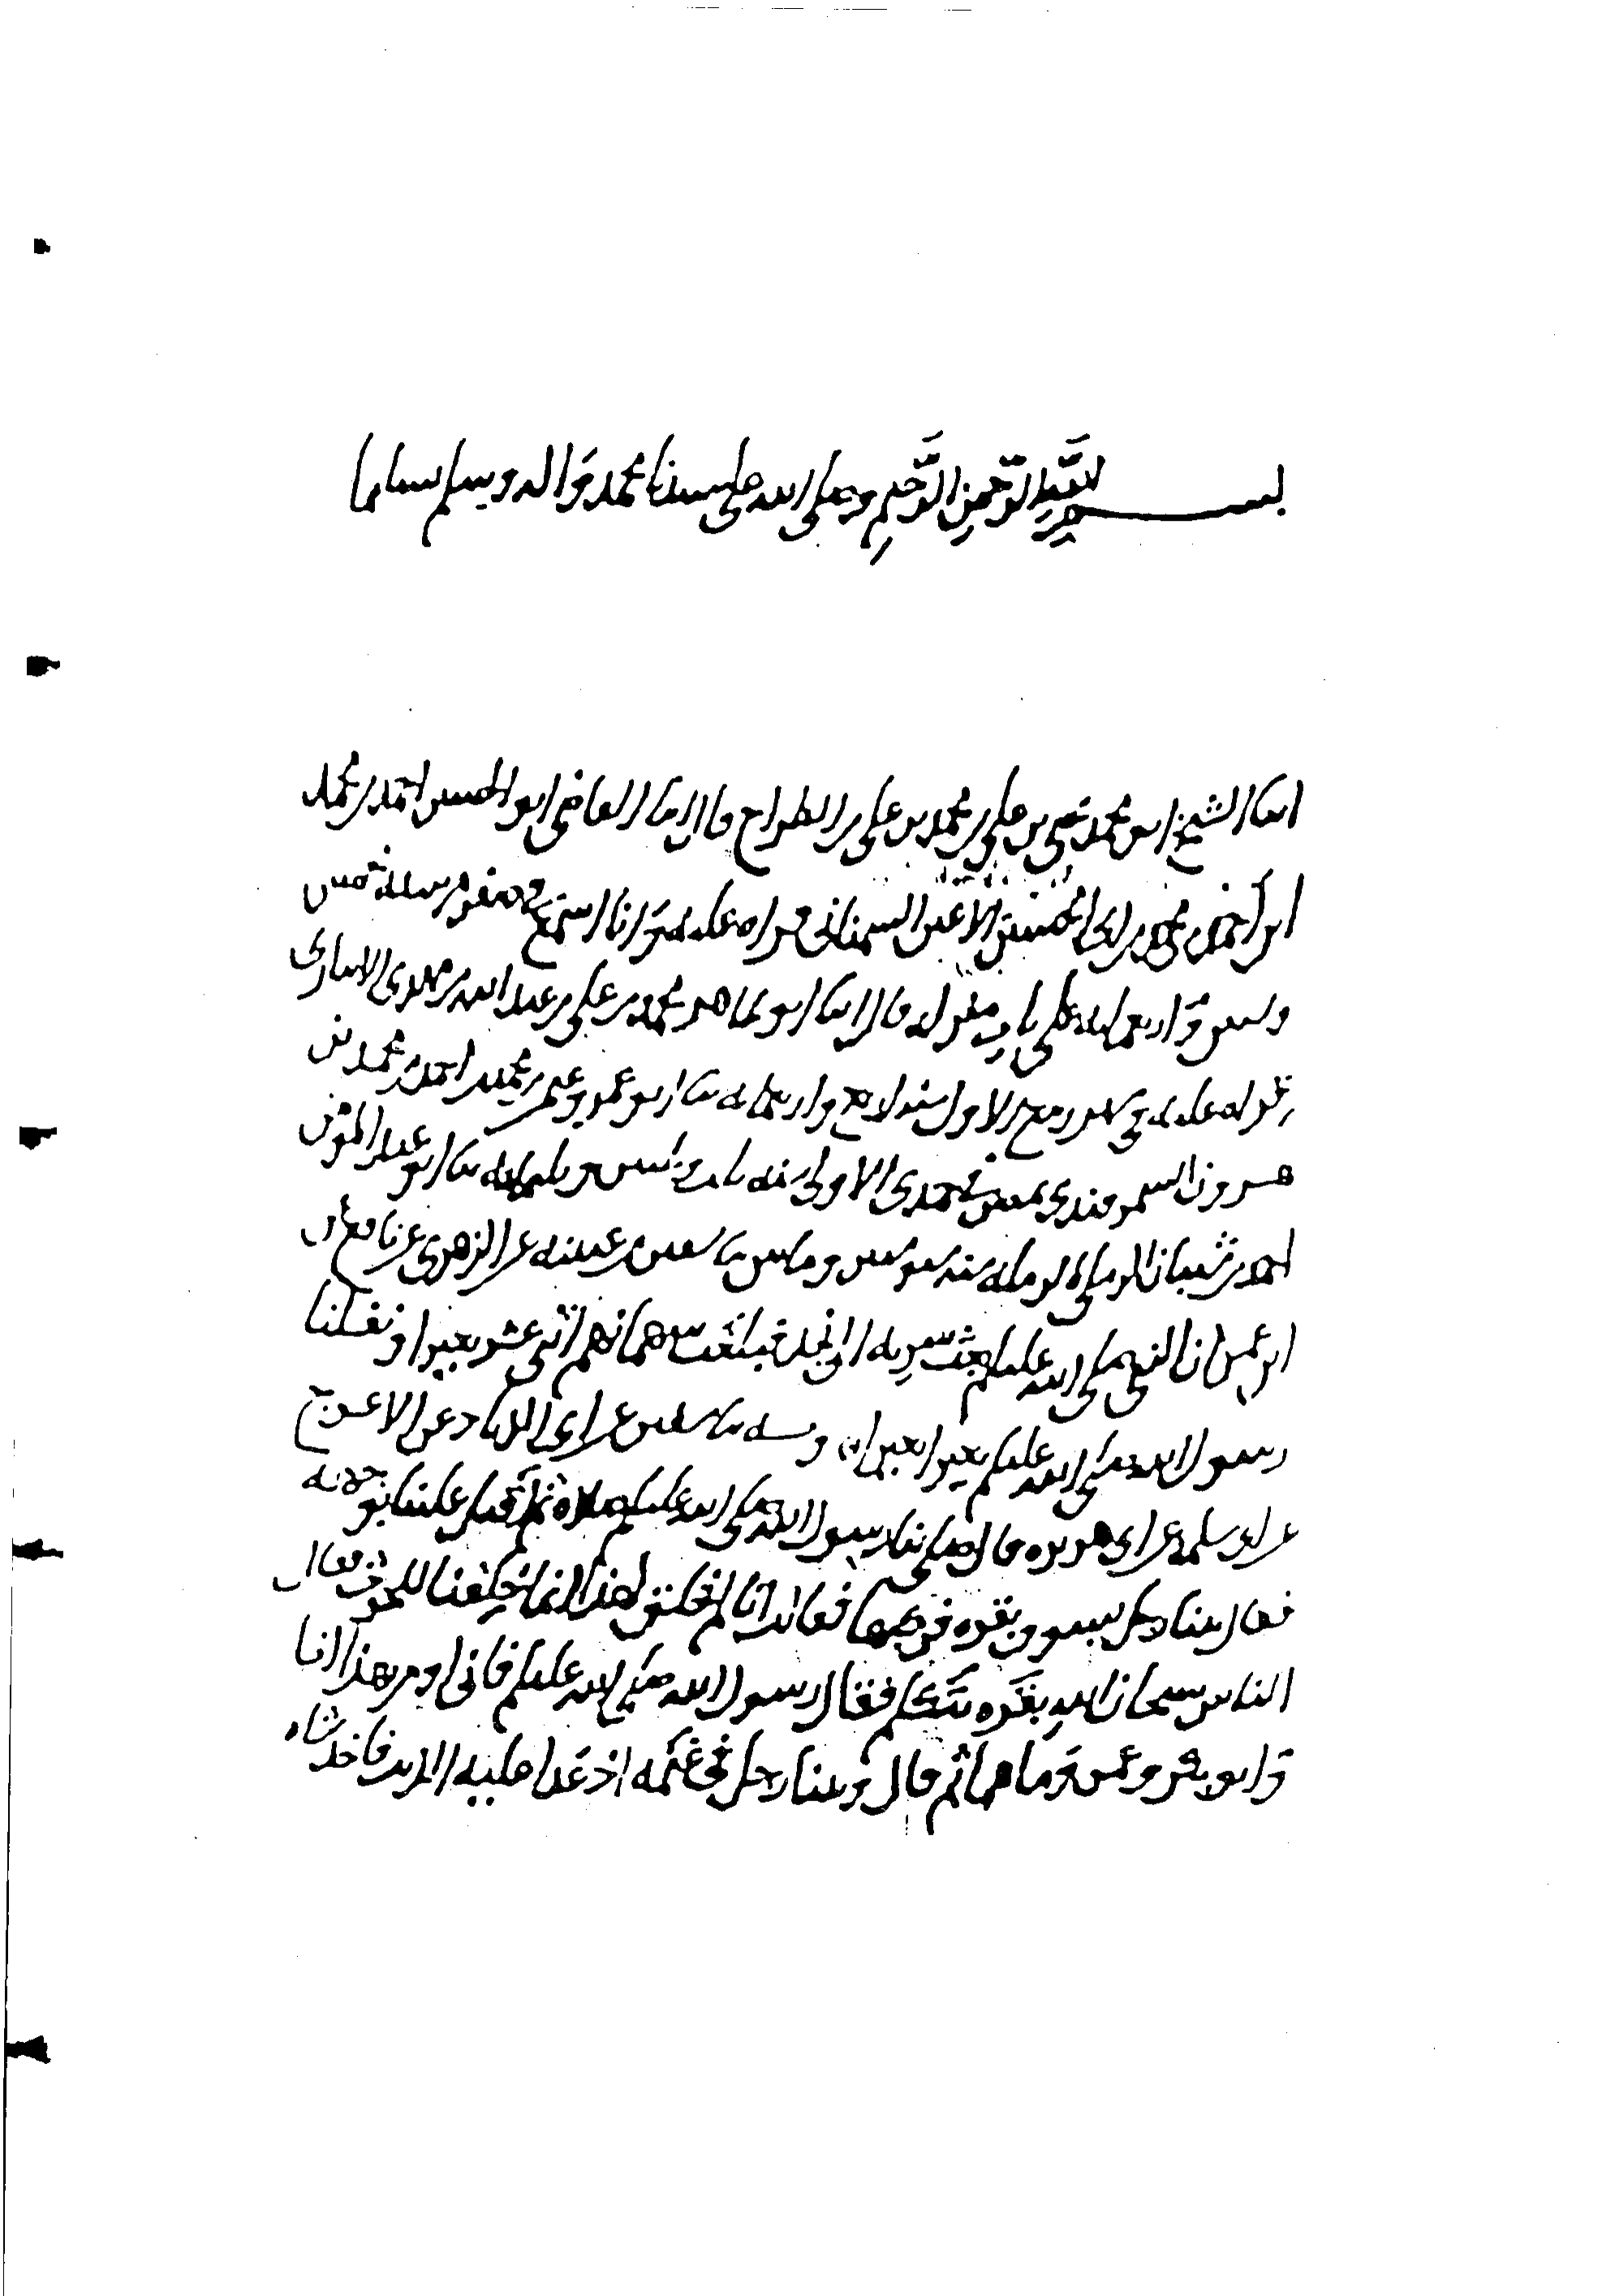 بسم الله الرحمن الرحيم وصلى الله على سيدنا محمد واله وسلم تسليما
انبا الشيخ ابو محمد يحيى بن علي بن محمد بن علي بن الطراح قال انبا القاضي ابو الحسين احمد بن محمد
ابن احمد بن محمد السمناني قراه عليه وانا اسمع في صفر من سنة خمس
وستين واربعمايه على باب منزله قال انبا ابو طاهر محمد بن علي بن عبد الله بن مهدي الانباري
بقراه عليه في شهر ربيع الاول سنه واربعمايه ثنا ابو عمرو عثمن بن محمد بن احمد بن محمد بن
هرون السمرقندي جمدى الاولى سنه وثلثمايه ثنا ابو عبد المومن
احمد بن شيبان الرملي بالرمله سنه ومايتين ثنا سفين بن عيينه عن الزهري عن نافع عن
ابن عمر ان النبي صلى الله عليه وسلم بعث سريه الى نجد فبلغت سهمانهم اثنى عشر بعيرا ونفلنا
رسول الله صلى الله عليه وسلم بعيرا بعيرا وبه ثنا سفين عن ابي الزناد عن الاعرج
عن ابي سلمه عن ابي هريره قال صلى بنا رسول الله صلى الله عليه وسلم صلاه ثم اقبل علينا بوجهه
فقال بينا رجل يسوق بقره فركبها فقالت انا لم نخلق لهذا انما خلقنا للحرث فقال
الناس سبحان الله بقره تتكلم فقال رسول الله صلى الله عليه وسلم فاني اومن بهذا انا
وابو بكر وعمر وما هما ثم قال وبينا رجل في غنمه اذ عدا عليه الذيب فاخذ شاه